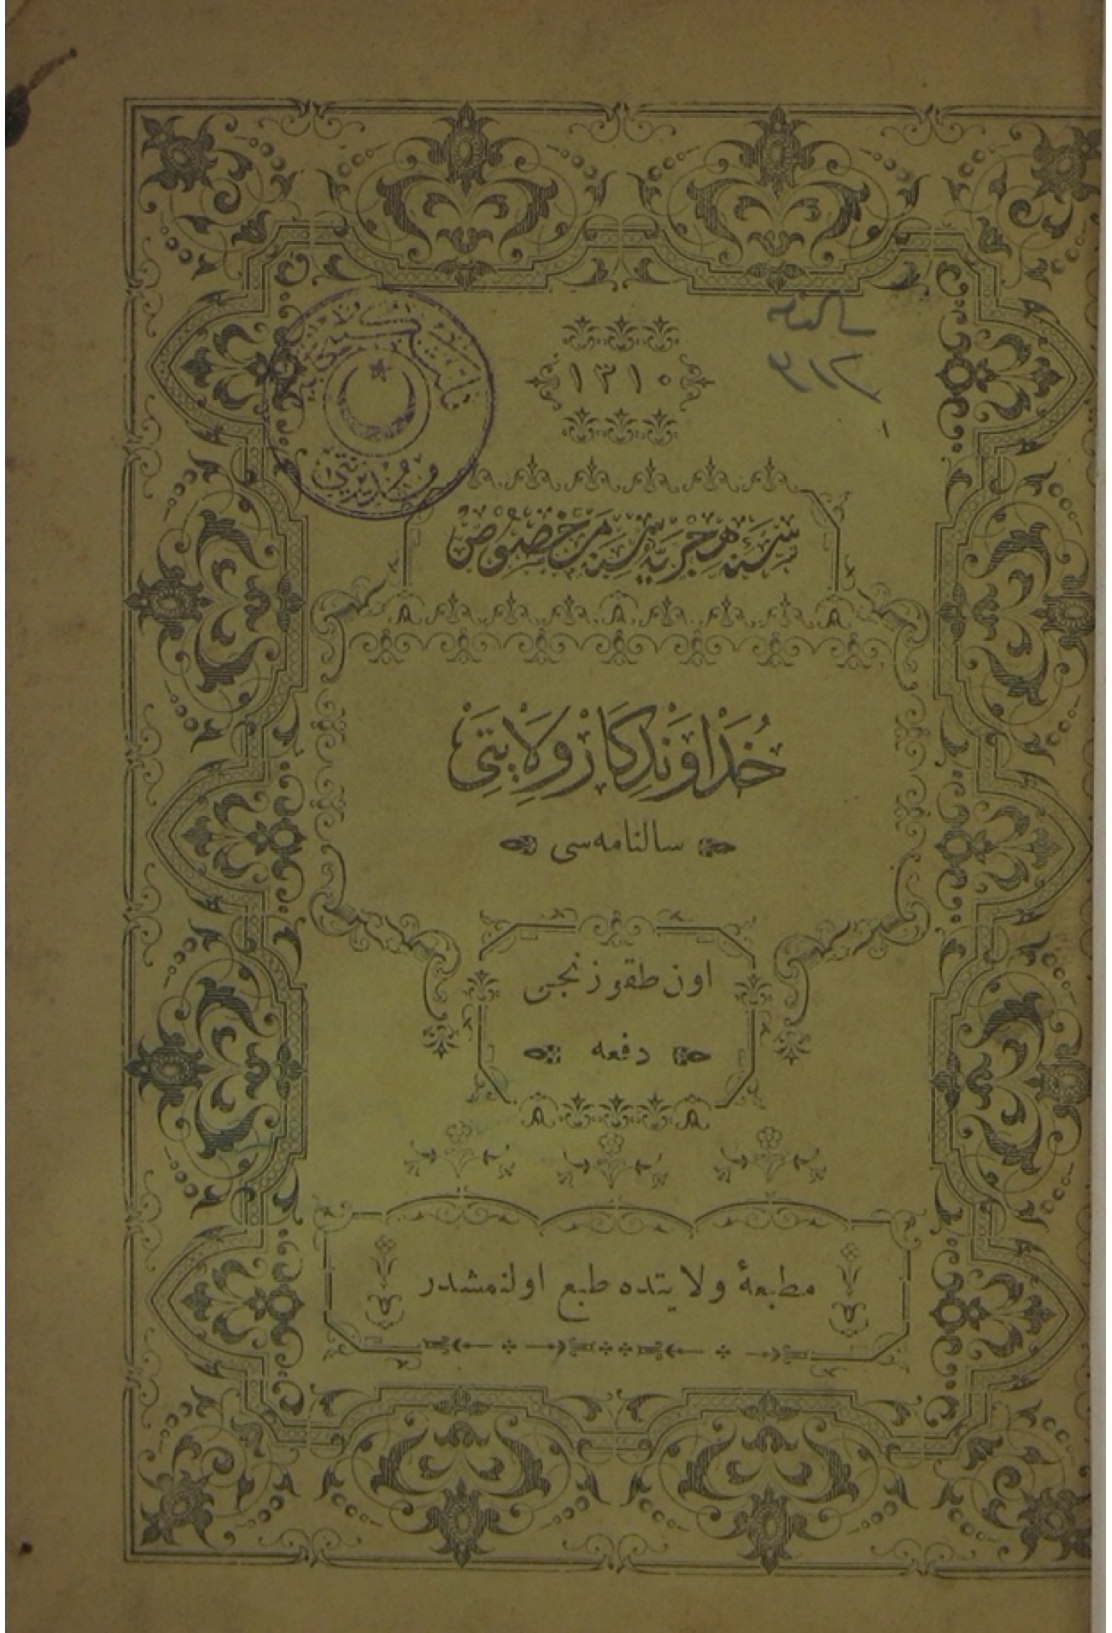 سالنامه
١٣١٠
سنۀ هجریه‌سنه مخصوص
خُدَاوَندِكَارْ وِلَايَتِى
سالنامه‌سی
اون طقوزنجی
دفعه
مطبعۀ ولایتده طبع اولنمشدر